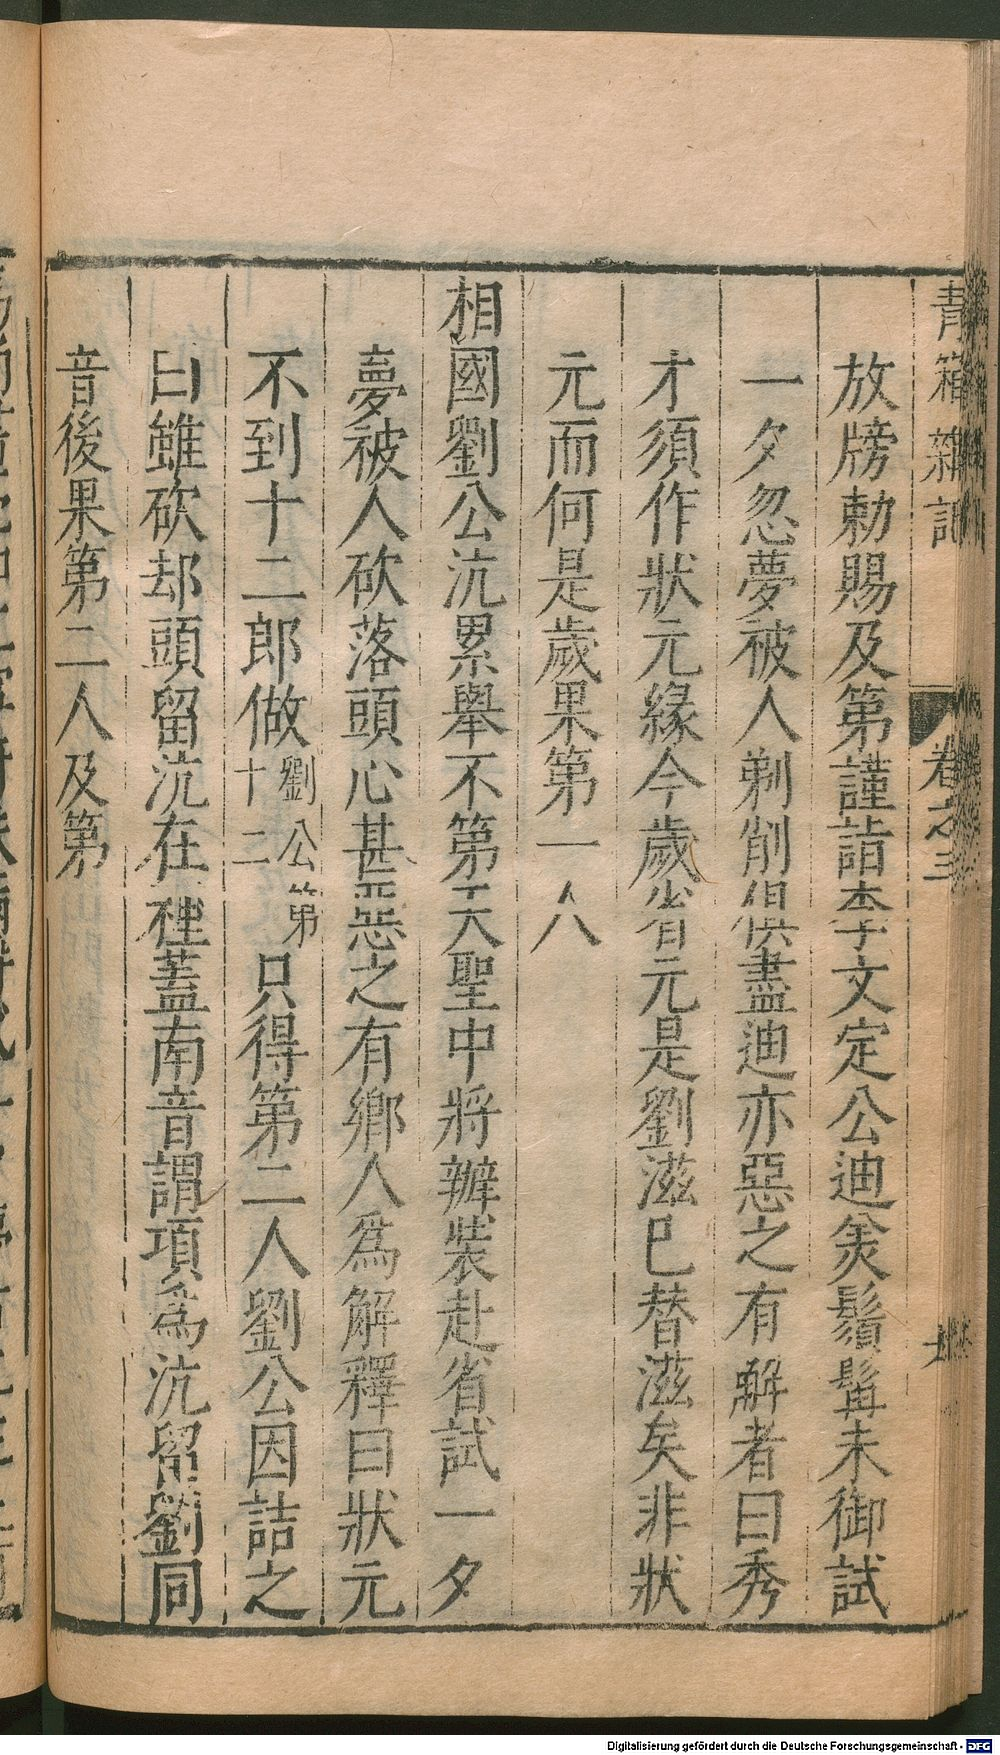 青箱雜記
卷之三
放牓勅賜及第謹詣李文定公迪美鬚髯未御試
一夕忽夢被人剃削俱盡迪亦惡之有解者曰秀
才須作狀元緣今歲省元是劉滋已替滋矣非狀
元而何是歲果第一人
相國劉公沆累舉不第天聖中將辦裝赴省試一夕
夢被人砍落頭心甚惡之有鄉人為解釋曰狀元
不到十二郎做劉公第十二只得第二人劉公因詰之
曰雖砍却頭留沆在裡蓋南音謂項為沆留劉同
音後果第二人及第
Digitalisierung gefördert durch die Deutsche Forschungsgemeinschaft - DFG